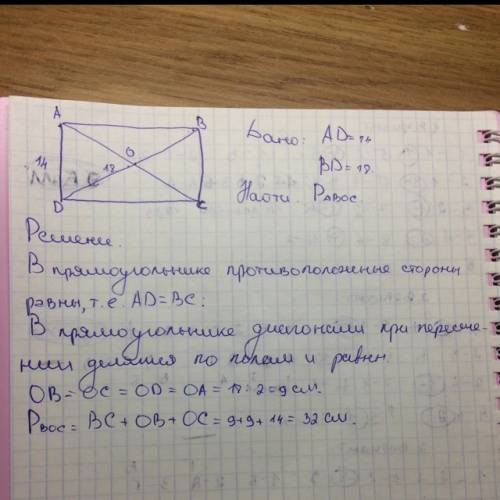 A
B
14
18
O
D
C
Дано: AD=14
BD=18.
Найти P△BOC.
Решени.
В прямоугольнике противоположные стороны
равны, т.е. AD=BC:
В прямоугольнике диагонали при пересече-
нии делятся по полам и равны.
OB=OC=OD=OA=18:2=9см.
Pвос=BC+OB+OC=9+9+14=32см.